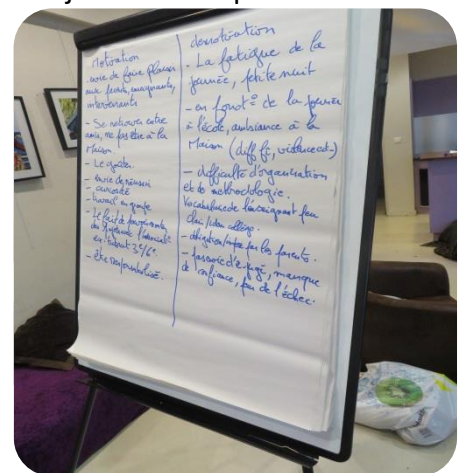 Motivation
- envie de faire plaisir
aux parents, enseignants,
intervenants
- Se retrouver entre
amis, ne pas être à la
maison
- Le goûter
- envie de réussir
- curiosité
- travail en groupe
- le fait de
en 3e/6e
- être responsabilisé.
démotivation
- La fatigue de la
journée, petite nuit
- en fonct° de la journée
à l'école, ambiance à la
Maison (diff fi, violence..)
- difficulté d'organisation
et de méthodologie.
Vocabulaire de l'enseignant peu
clair
- obligation par les parents.
- peur d'être jugé, manque
de confiance, peur de l'échec.